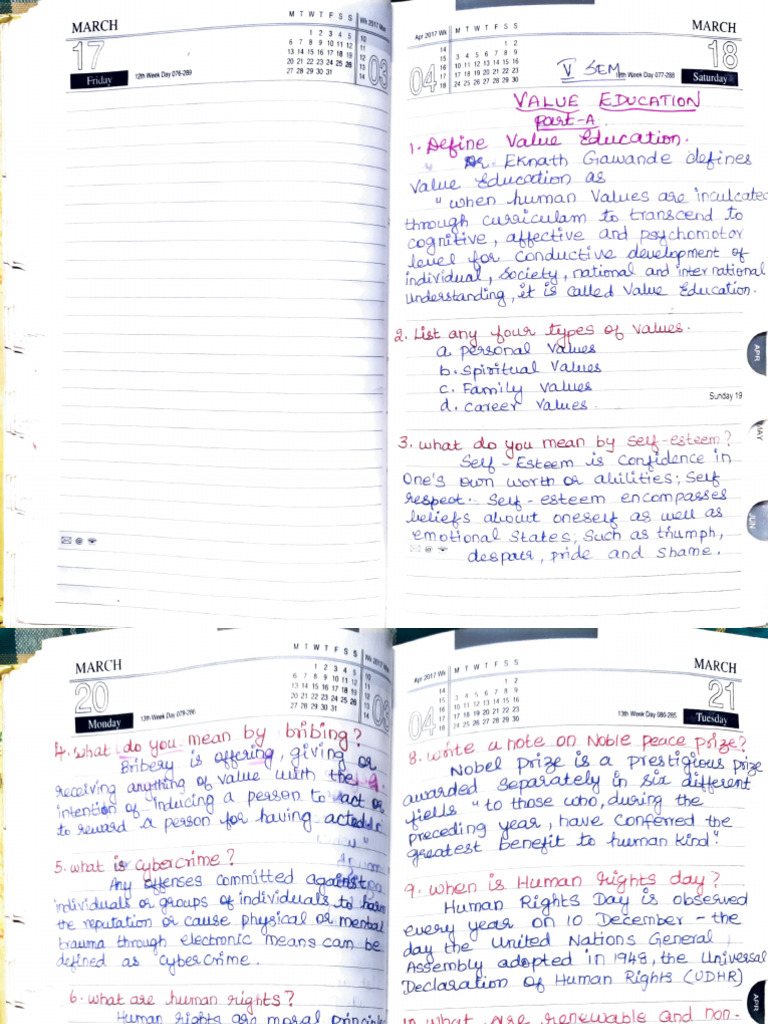 MARCH
17
Friday
12th Week Day 076-289
M T W T F S S
1 2 3 4 5
6 7 8 9 10 11 12
13 14 15 16 17 18 19
20 21 22 23 24 25 26
27 28 29 30 31
Wk 2017 Mar
10
11
12
13
14
03
Apr 2017 Wk
14
15
16
17
18
04
M T W T F S S
1 2
3 4 5 6 7 8 9
MARCH
18
Saturday
Week Day 077-288
V SEM
VALUE EDUCATION
Part-A
1. Define Value Education.
Dr. Eknath Gawande defines
Value Education as
"when human Values are inculcated
through curriculam to transcend to
cognitive, affective and psychomotor
level for conductive development of
individual, society, national and international
understanding, it is called Value Education.
2. List any four types of values.
a. personal Values
b. Spiritual Values
c. Family Values
d. career values.
Sunday 19
3. what do you mean by self-esteem?
Self-Esteem is confidence in
one's own worth or abilities; Self
respect. Self-esteem encompasses
beliefs about oneself as well as
emotional states; such as triumph,
despair, pride and shame.
APR
MAY
JUN
MARCH
20
Monday
13th Week Day 079-286
M T W T F S S
1 2 3 4 5
6 7 8 9 10 11 12
13 14 15 16 17 18 19
20 21 22 23 24 25 26
27 28 29 30 31
Wk 2017 Mar
10
11
12
13
14
4. what do you mean by bribing?
Bribery is offering, giving or
receiving anything of value with the
intention of inducing a person to act or
to reward a person for having acted.
5. what is cybercrime?
Any offenses committed against
individuals or groups of individuals to harm
the reputation or cause physical or mental
trauma through electronic means can be
defined as cybercrime.
6. what are human rights?
Human rights are moral principles
Apr 2017 Wk
14
15
16
17
18
04
M T W T F S S
1 2
3 4 5 6 7 8 9
MARCH
21
Tuesday
13th Week Day 080-285
8. write a note on Noble peace prize?
Nobel prize is a prestigious prize
awarded separately in six different
fields "to those who, during the
preceding year, have conferred the
greatest benefit to human kind".
9. when is Human rights day?
Human Rights Day is observed
every year on 10 December - the
day the United Nations General
Assembly adopted in 1948, the Universal
Declaration of Human Rights (UDHR)
10. what are renewable and non-
APR